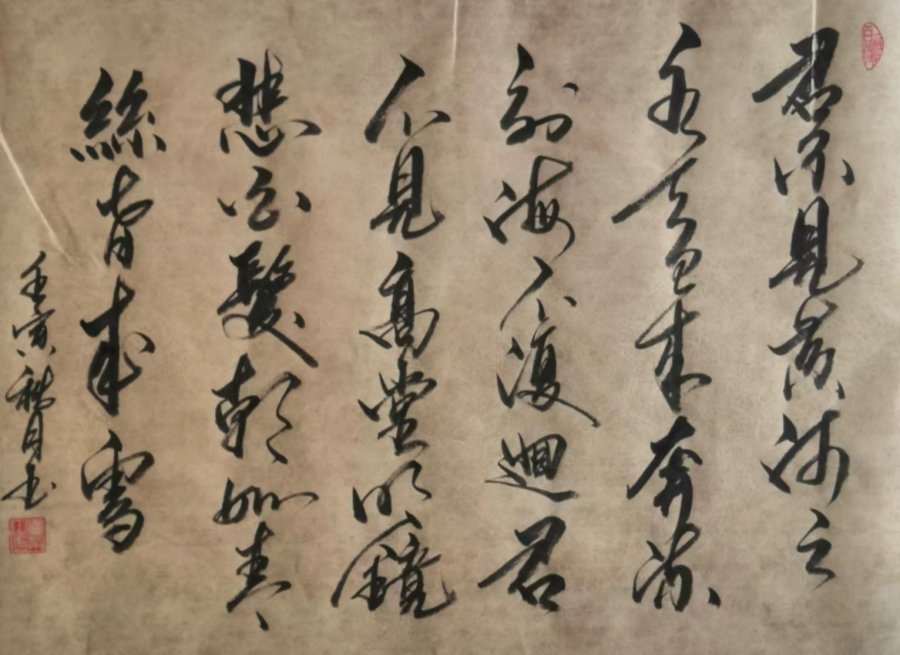 君不見黃河之
水天上來奔流
到海不復迴君
不見高堂明鏡
悲白髮朝如青
絲暮成雪
壬寅秋月书